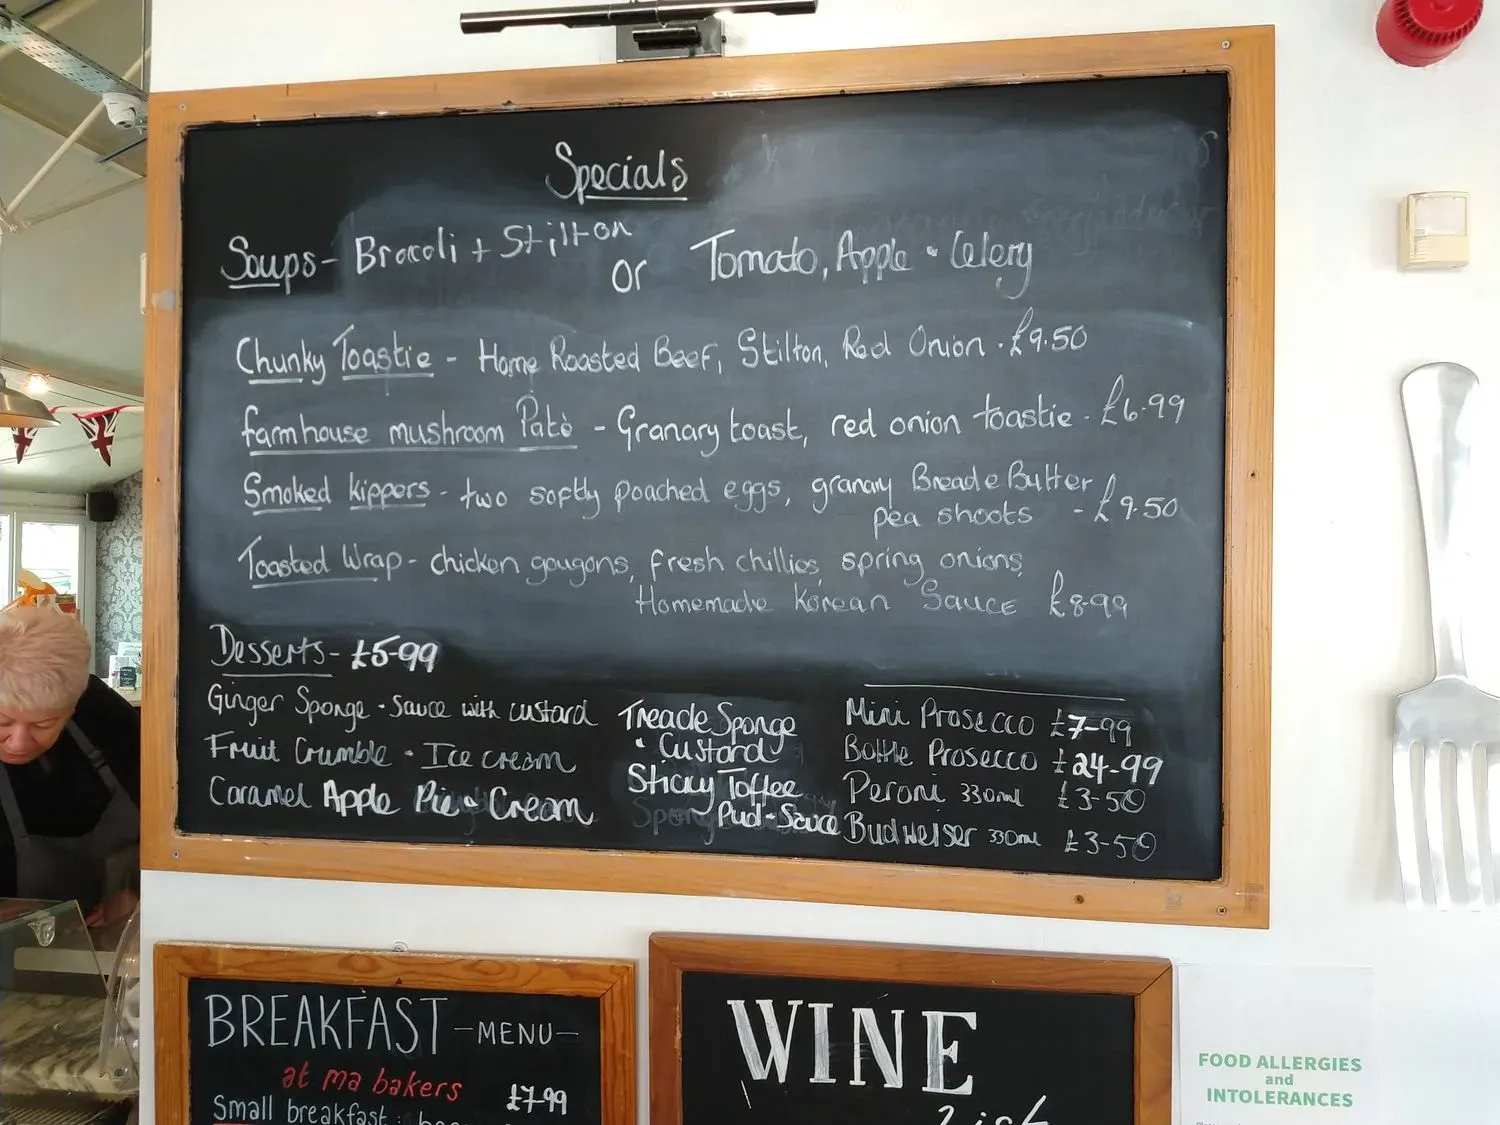 Specials
Soups - Brocoli + Stilton or Tomato, Apple • Celery
Chunky Toastie - Home Roasted Beef, Stilton, Red Onion . £9.50
farmhouse mushroom Patè - Granary toast, red onion toastie - £6.99
Smoked kippers - two softly poached eggs, granary Bread e Butter
pea shoots - £9.50
Toasted Wrap - chicken gougons, fresh chillies, spring onions,
Homemade Korean Sauce £8.99
Desserts - £5-99
Ginger Sponge • Sauce with custard
Fruit Crumble • Ice cream
Caramel Apple Pie • Cream
Treacle Sponge
• Custard
Sticky Toffee
Pud • Sauce
Mini Prosecco £7-99
Bottle Prosecco £24-99
Peroni 330ml £3-50
Budweiser 330ml £3-50
BREAKFAST - MENU -
at ma bakers
£7.99
Small breakfast:
WINE
List
FOOD ALLERGIES
and
INTOLERANCES